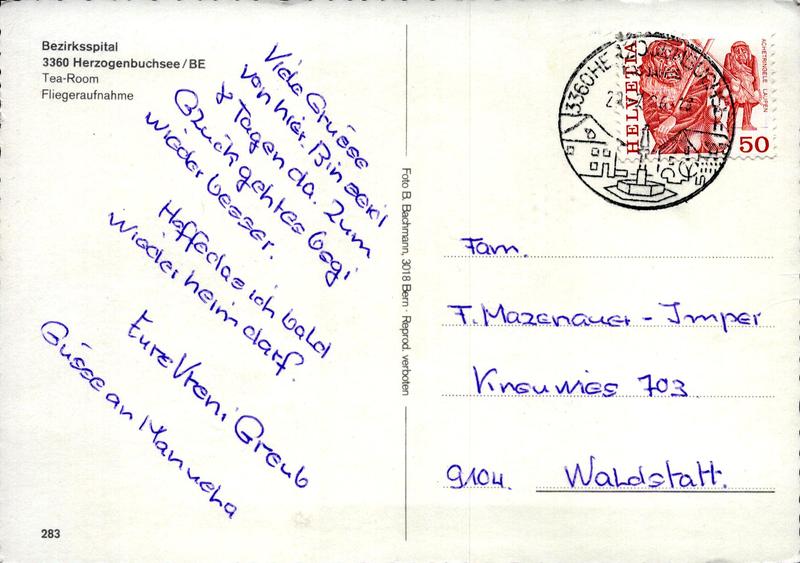 Bezirksspital
3360 Herzogenbuchsee/BE
Tea-Room
Fliegeraufnahme
Viele Grüsse
von hier. Bin seit
8 Tagen da. Zum
Glück geht es
wieder besser.
Hoffe das ich bald
wieder heim darf.
Eure Vreni Greub
Grüsse an Manuela
283
Foto B. Bachmann, 3018 Bern - Reprod. verboten
3360 HERZOGENBUCHSEE
HELVETIA
ACHETRINGELE LAUPEN
50
Fam.
F. Mazenauer - Imper
703
9104. Waldstatt.